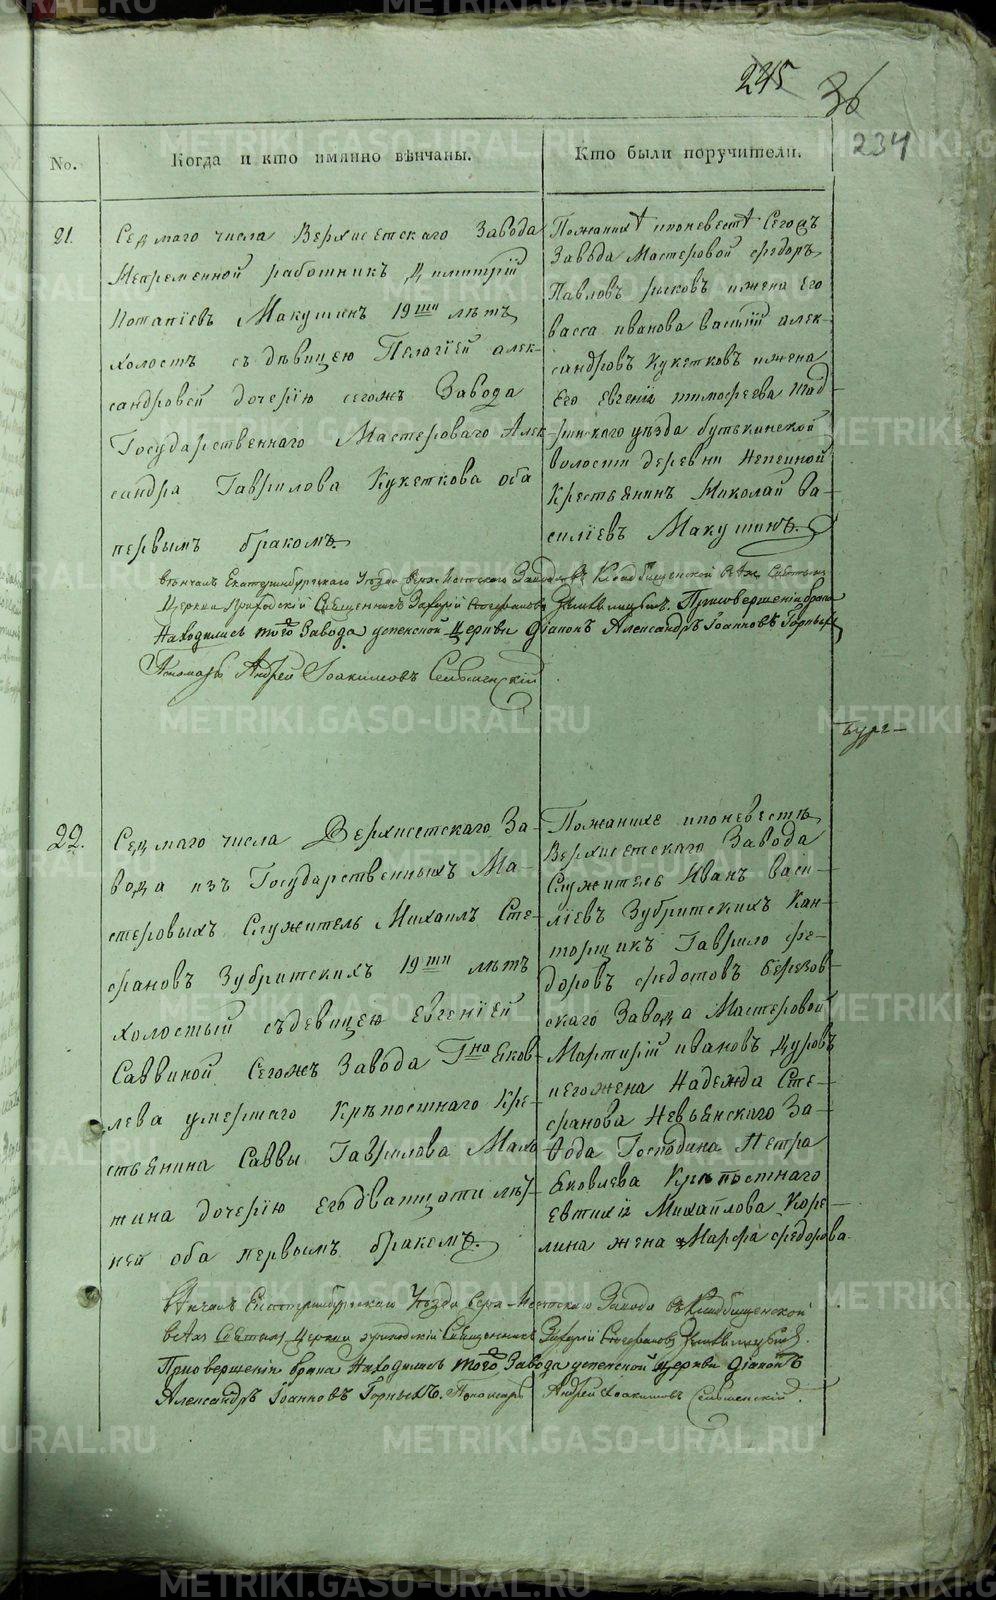 245
36
234
No.
Когда и кто имянно вѣнчаны.
Кто были поручители.
21.
Седмаго числа Верхисетскаго Завода
Непременной работникъ Димитрій
Потапіевъ Макушинъ 19ти лѣтъ
холостъ съ дѣвицею Пелагіей алек-
сандровой дочерію сегожъ Завода
Государственнаго Мастероваго Алек-
сандра Гаврилова Кукеткова оба
первымъ бракомъ.
Пожанихѣ ипоневестѣ Сегожъ
Завода Мастеровой федоръ
Павловъ рысковъ ижена Его
васса иванова василій алек-
сандровъ Кукетковъ ижена
Его Евгенія тимофеева шад-
ринскаго уѣзда бутькинской
волости деревни непеиной
Крестьянинъ Николай ва-
силіевъ Макушинъ.
вѣнчалъ Екатеринбургскаго Уѣзда верх-Исетскаго Завода въ Кладбищенской всѣхъ святыхъ
Церкви Приходскій Священникъ Захарій Стефановъ Присовершеніи брака
Находились того Завода успенской Церкви діаконъ Александръ Іоанновъ Горныхъ
Пономарь Андрей Іоакимовъ Сельменскій
22.
Седмаго числа Верхисетскаго За-
вода изъ Государственныхъ Ма-
стеровыхъ Служитель Михаилъ Сте-
фановъ Зубритскихъ 19ти лѣтъ
холостый съдевицею Евгеніей
Саввиной Сегожъ Завода Гна Яков-
лева умершаго Крѣпостнаго Кре-
стьянина Саввы Гаврилова Мала
тина дочерію Егодватцати лѣт-
ней оба первымъ бракомъ.
Пожанихе ипоневестѣ
Верхисетскаго Завода
Служитель Иванъ васи-
ліевъ Зубритскихъ Кан-
торщикъ Гаврило фе-
доровъ федотовъ березов-
скаго Завода Мастеровой
Мартирій ивановъ Дуровъ
иегожена Надежда Сте-
фанова Невьянскаго За-
вода Господина Петра
Яковлева Крѣпостнаго
Евтихія Михайлова Коре-
лина жена Марфа федорова
вѣнчалъ Екатеринбургскаго Уѣзда верх-Исетскаго Завода въ Кладбищенской
всѣхъ Святыхъ Церкви приходскій Священникъ Захарій Стефановъ
Присовершеніи брака Находились того Завода успенской церкви діаконъ
Александръ Іоанновъ Горныхъ. Пономарь Андрей Іоакимовъ Сельменскій.
METRIKI.GASO-URAL.RU